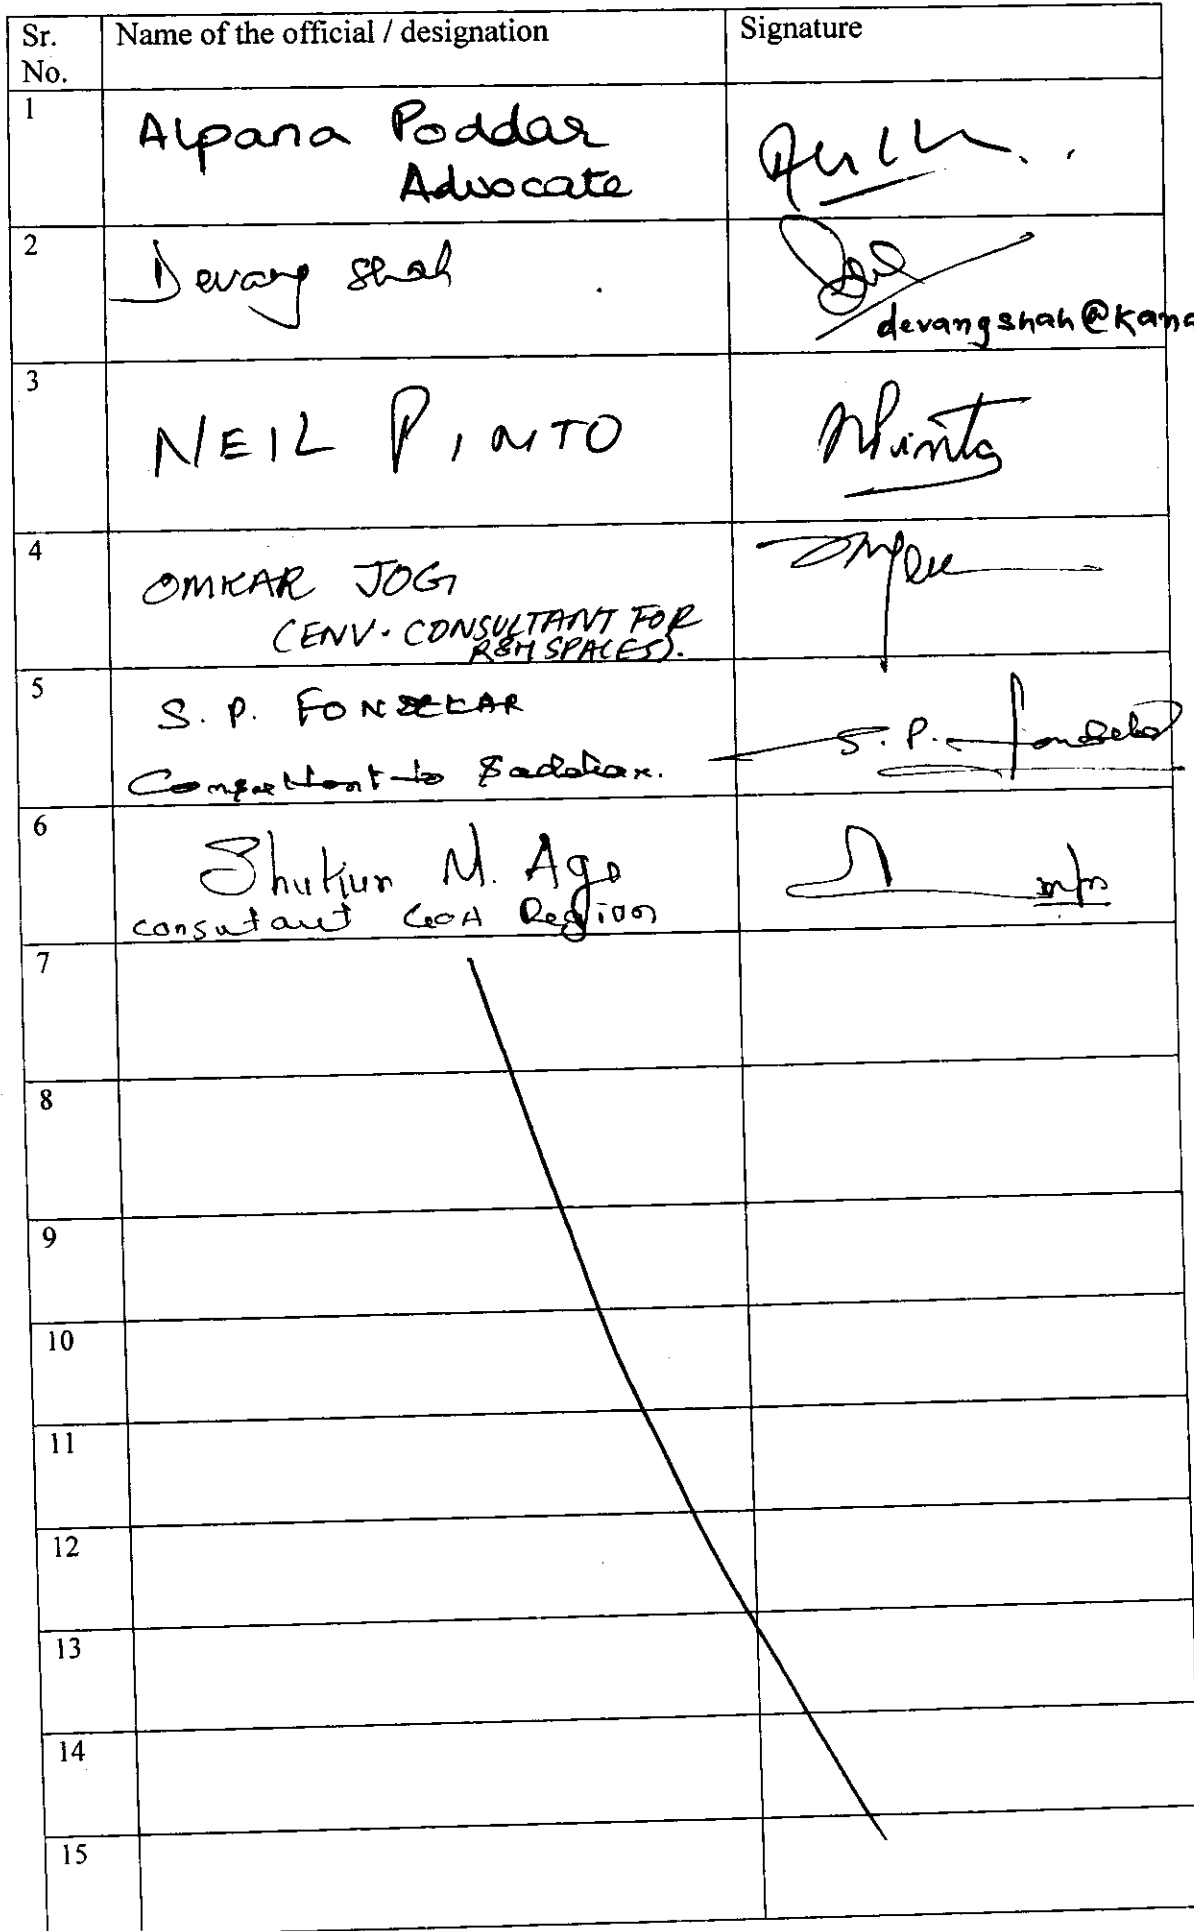 Sr. No. Name of the official / designation Signature
1 Alpana Poddar
Advocate
2 Devang Shah
devangshah@kana
3 NEIL PINTO
NPinto
4 OMKAR JOG
(ENV. CONSULTANT FOR
R&M SPACES).
5 S. P. FONDEKAR S. P. Fondekar
to
6 Shukun M.
consutant GOA Region
7
8
9
10
11
12
13
14
15